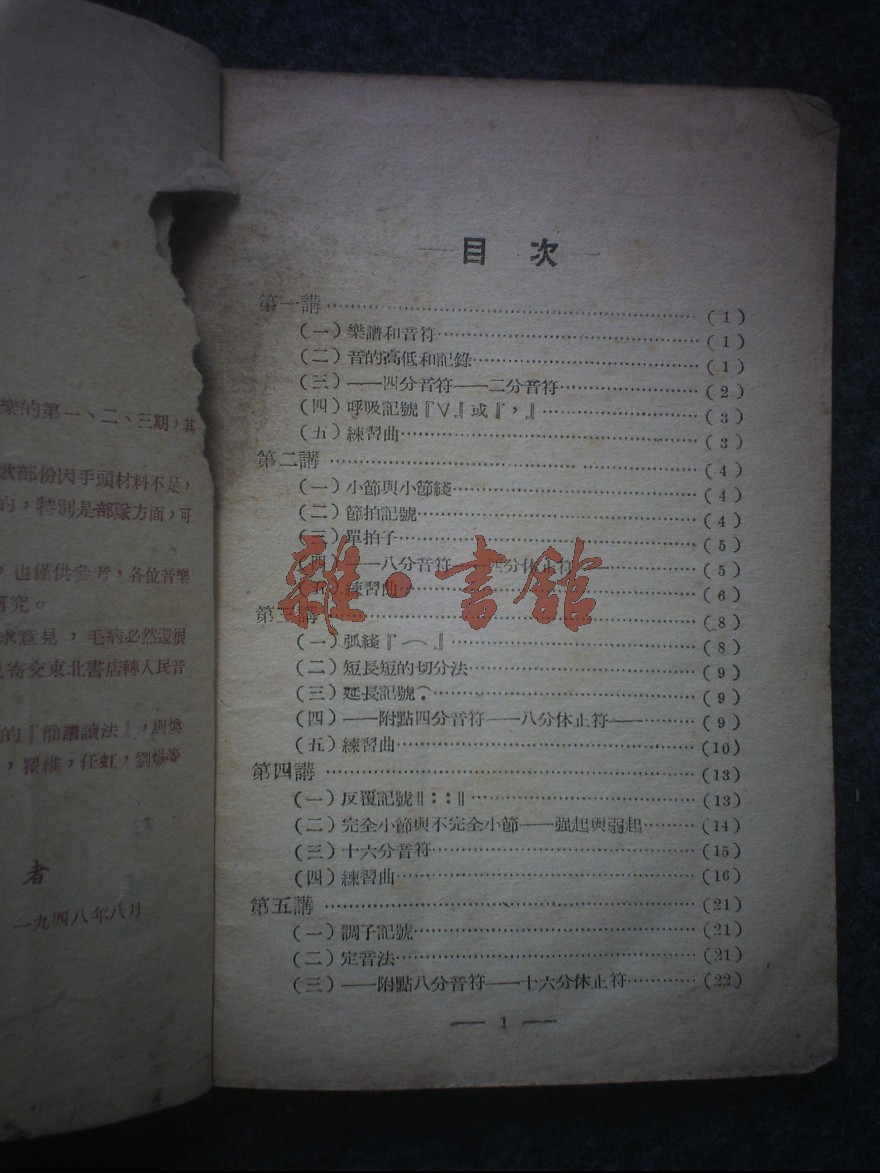 樂的第一、二、三期，其
部份因手頭材料不足，
的，特別是部隊方面，可
，也僅供參考，各位音樂
研究。
求意見，毛病必然還很
寄交東北書店轉人民音
的『簡譜讀法』，
，瞿維，任虹，劉熾等
者
一九四八年八月
目 次
第一講……(1)
(一)樂譜和音符……(1)
(二)音的高低和記錄……(1)
(三)——四分音符——二分音符……(2)
(四)呼吸記號『∨』或『，』……(3)
(五)練習曲……(3)
第二講……(4)
(一)小節與小節綫……(4)
(二)節拍記號……(4)
(三)單拍子……(5)
(四)——八分音符——四分休止符……(5)
(五)練習曲……(6)
第三講……(8)
(一)弧綫『⌒』……(8)
(二)短長短的切分法……(9)
(三)延長記號𝄐……(9)
(四)——附點四分音符——八分休止符——……(9)
(五)練習曲……(10)
第四講……(13)
(一)反覆記號‖::‖……(13)
(二)完全小節與不完全小節——強起與弱起……(14)
(三)十六分音符……(15)
(四)練習曲……(16)
第五講……(21)
(一)調子記號……(21)
(二)定音法……(21)
(三)——附點八分音符——十六分休止符……(22)
— 1 —
雜·書館